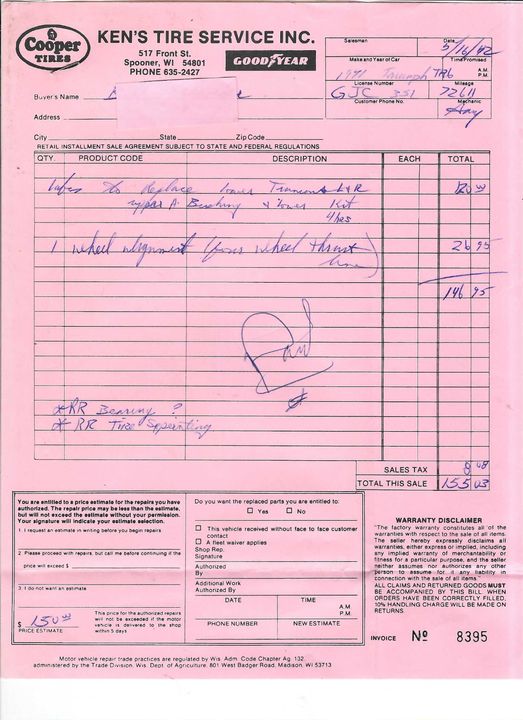 Cooper TIRES
KEN'S TIRE SERVICE INC.
517 Front St.
Spooner, WI 54801
PHONE 635-2427
GOODYEAR
Salesman
Date 5/16/92
Make and Year of Car
Time Promised
1971 Triumph TR6
A.M.
P.M.
License Number
Mileage
GJC 351
72611
Customer Phone No.
Mechanic
Buyer's Name
Address
City State Zip Code
RETAIL INSTALLMENT SALE AGREEMENT SUBJECT TO STATE AND FEDERAL REGULATIONS
QTY. PRODUCT CODE DESCRIPTION EACH TOTAL
to Replace lower Trunnions L+R 120 00
upper A. Bushing + lower Kit
4 hrs
1 wheel alignment (four wheel thrust line) 26 95
146 95
Paid
* RR Bearing ?
* RR Tire
SALES TAX 8 08
TOTAL THIS SALE 155 03
You are entitled to a price estimate for the repairs you have
authorized. The repair price may be less than the estimate,
but will not exceed the estimate without your permission.
Your signature will indicate your estimate selection.
1. I request an estimate in writing before you begin repairs
2. Please proceed with repairs, but call me before continuing if the
price will exceed $
3. I do not want an estimate.
$ 150 00
PRICE ESTIMATE
This price for the authorized repairs
will not be exceeded if the motor
vehicle is delivered to the shop
within 5 days
Do you want the replaced parts you are entitled to:
Yes No
This vehicle received without face to face customer
contact
A fleet waiver applies
Shop Rep.
Signature
Authorized
By
Additional Work
Authorized By
DATE TIME
A.M.
P.M.
PHONE NUMBER NEW ESTIMATE
WARRANTY DISCLAIMER
"The factory warranty constitutes all of the
warranties with respect to the sale of all items.
The seller hereby expressly disclaims all
warranties, either express or implied, including
any implied warranty of merchantability or
fitness for a particular purpose, and the seller
neither assumes nor authorizes any other
person to assume for it any liability in
connection with the sale of all items."
ALL CLAIMS AND RETURNED GOODS MUST
BE ACCOMPANIED BY THIS BILL WHEN
ORDERS HAVE BEEN CORRECTLY FILLED.
10% HANDLING CHARGE WILL BE MADE ON
RETURNS.
INVOICE No 8395
Motor vehicle repair trade practices are regulated by Wis. Adm. Code Chapter Ag. 132,
administered by the Trade Division, Wis. Dept. of Agriculture, 801 West Badger Road, Madison, WI 53713